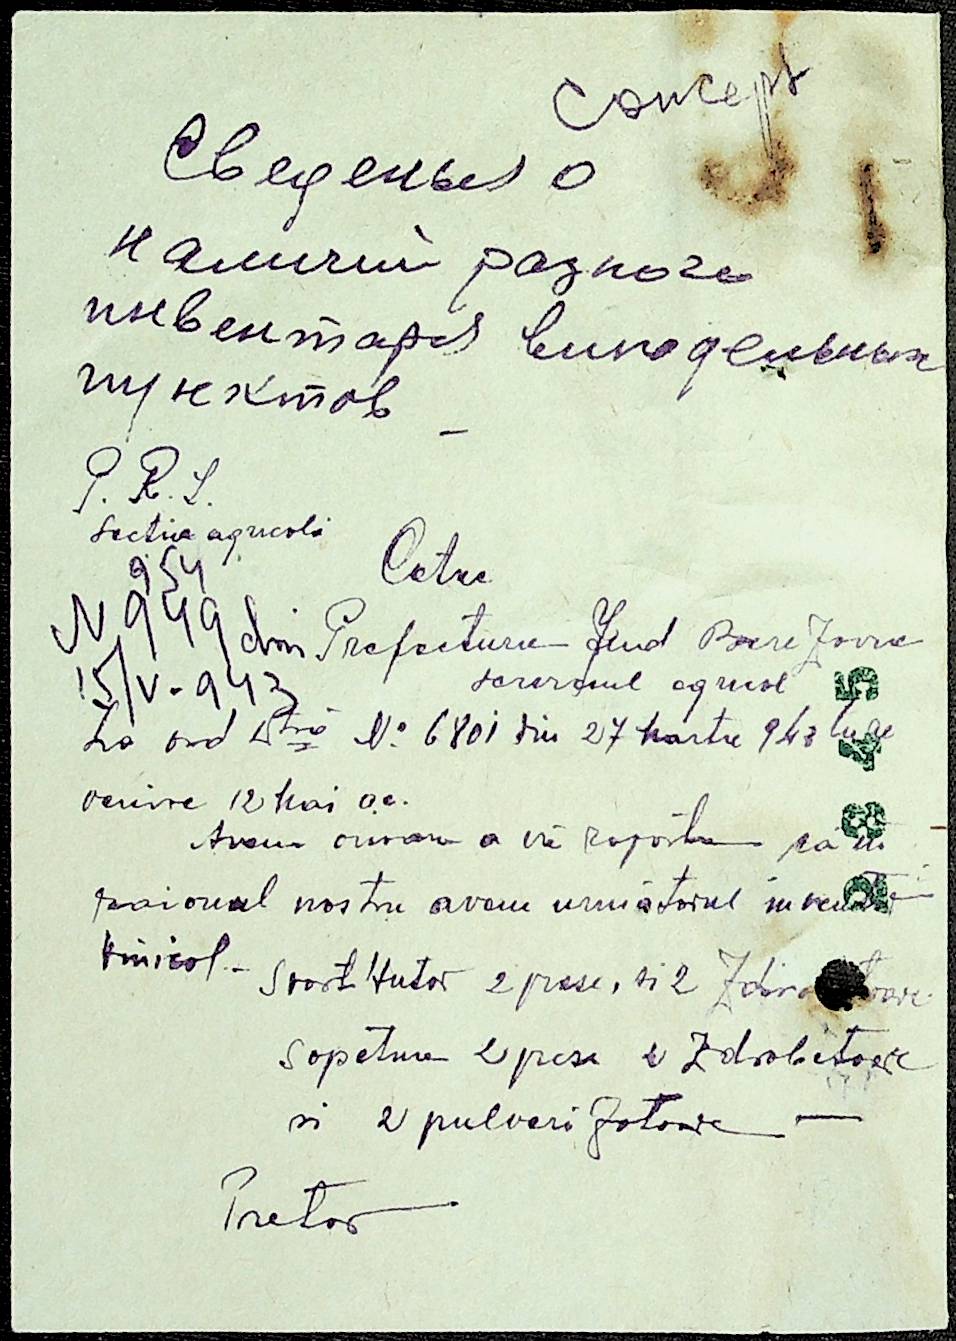 Concept
Сведенья о
наличии разного
инвентаря винодельных
пунктов –
P. R. L.
Sectia agricolă
954
N 949 din
15/V-943
Catre
Prefectura Jud Berezovca
serviciul agricol
La ord Dtră No 6801 din 27 Martie 943
venire 12 Mai ac.
Avem onoare a vă raporta că in
raionul nostru avem urmatorul inventar
Vinicol –
Hutor 2 prese, si 2
2 prese 2 Zdrobitoare
si 2 pulverizatoare —
Pretor
2845